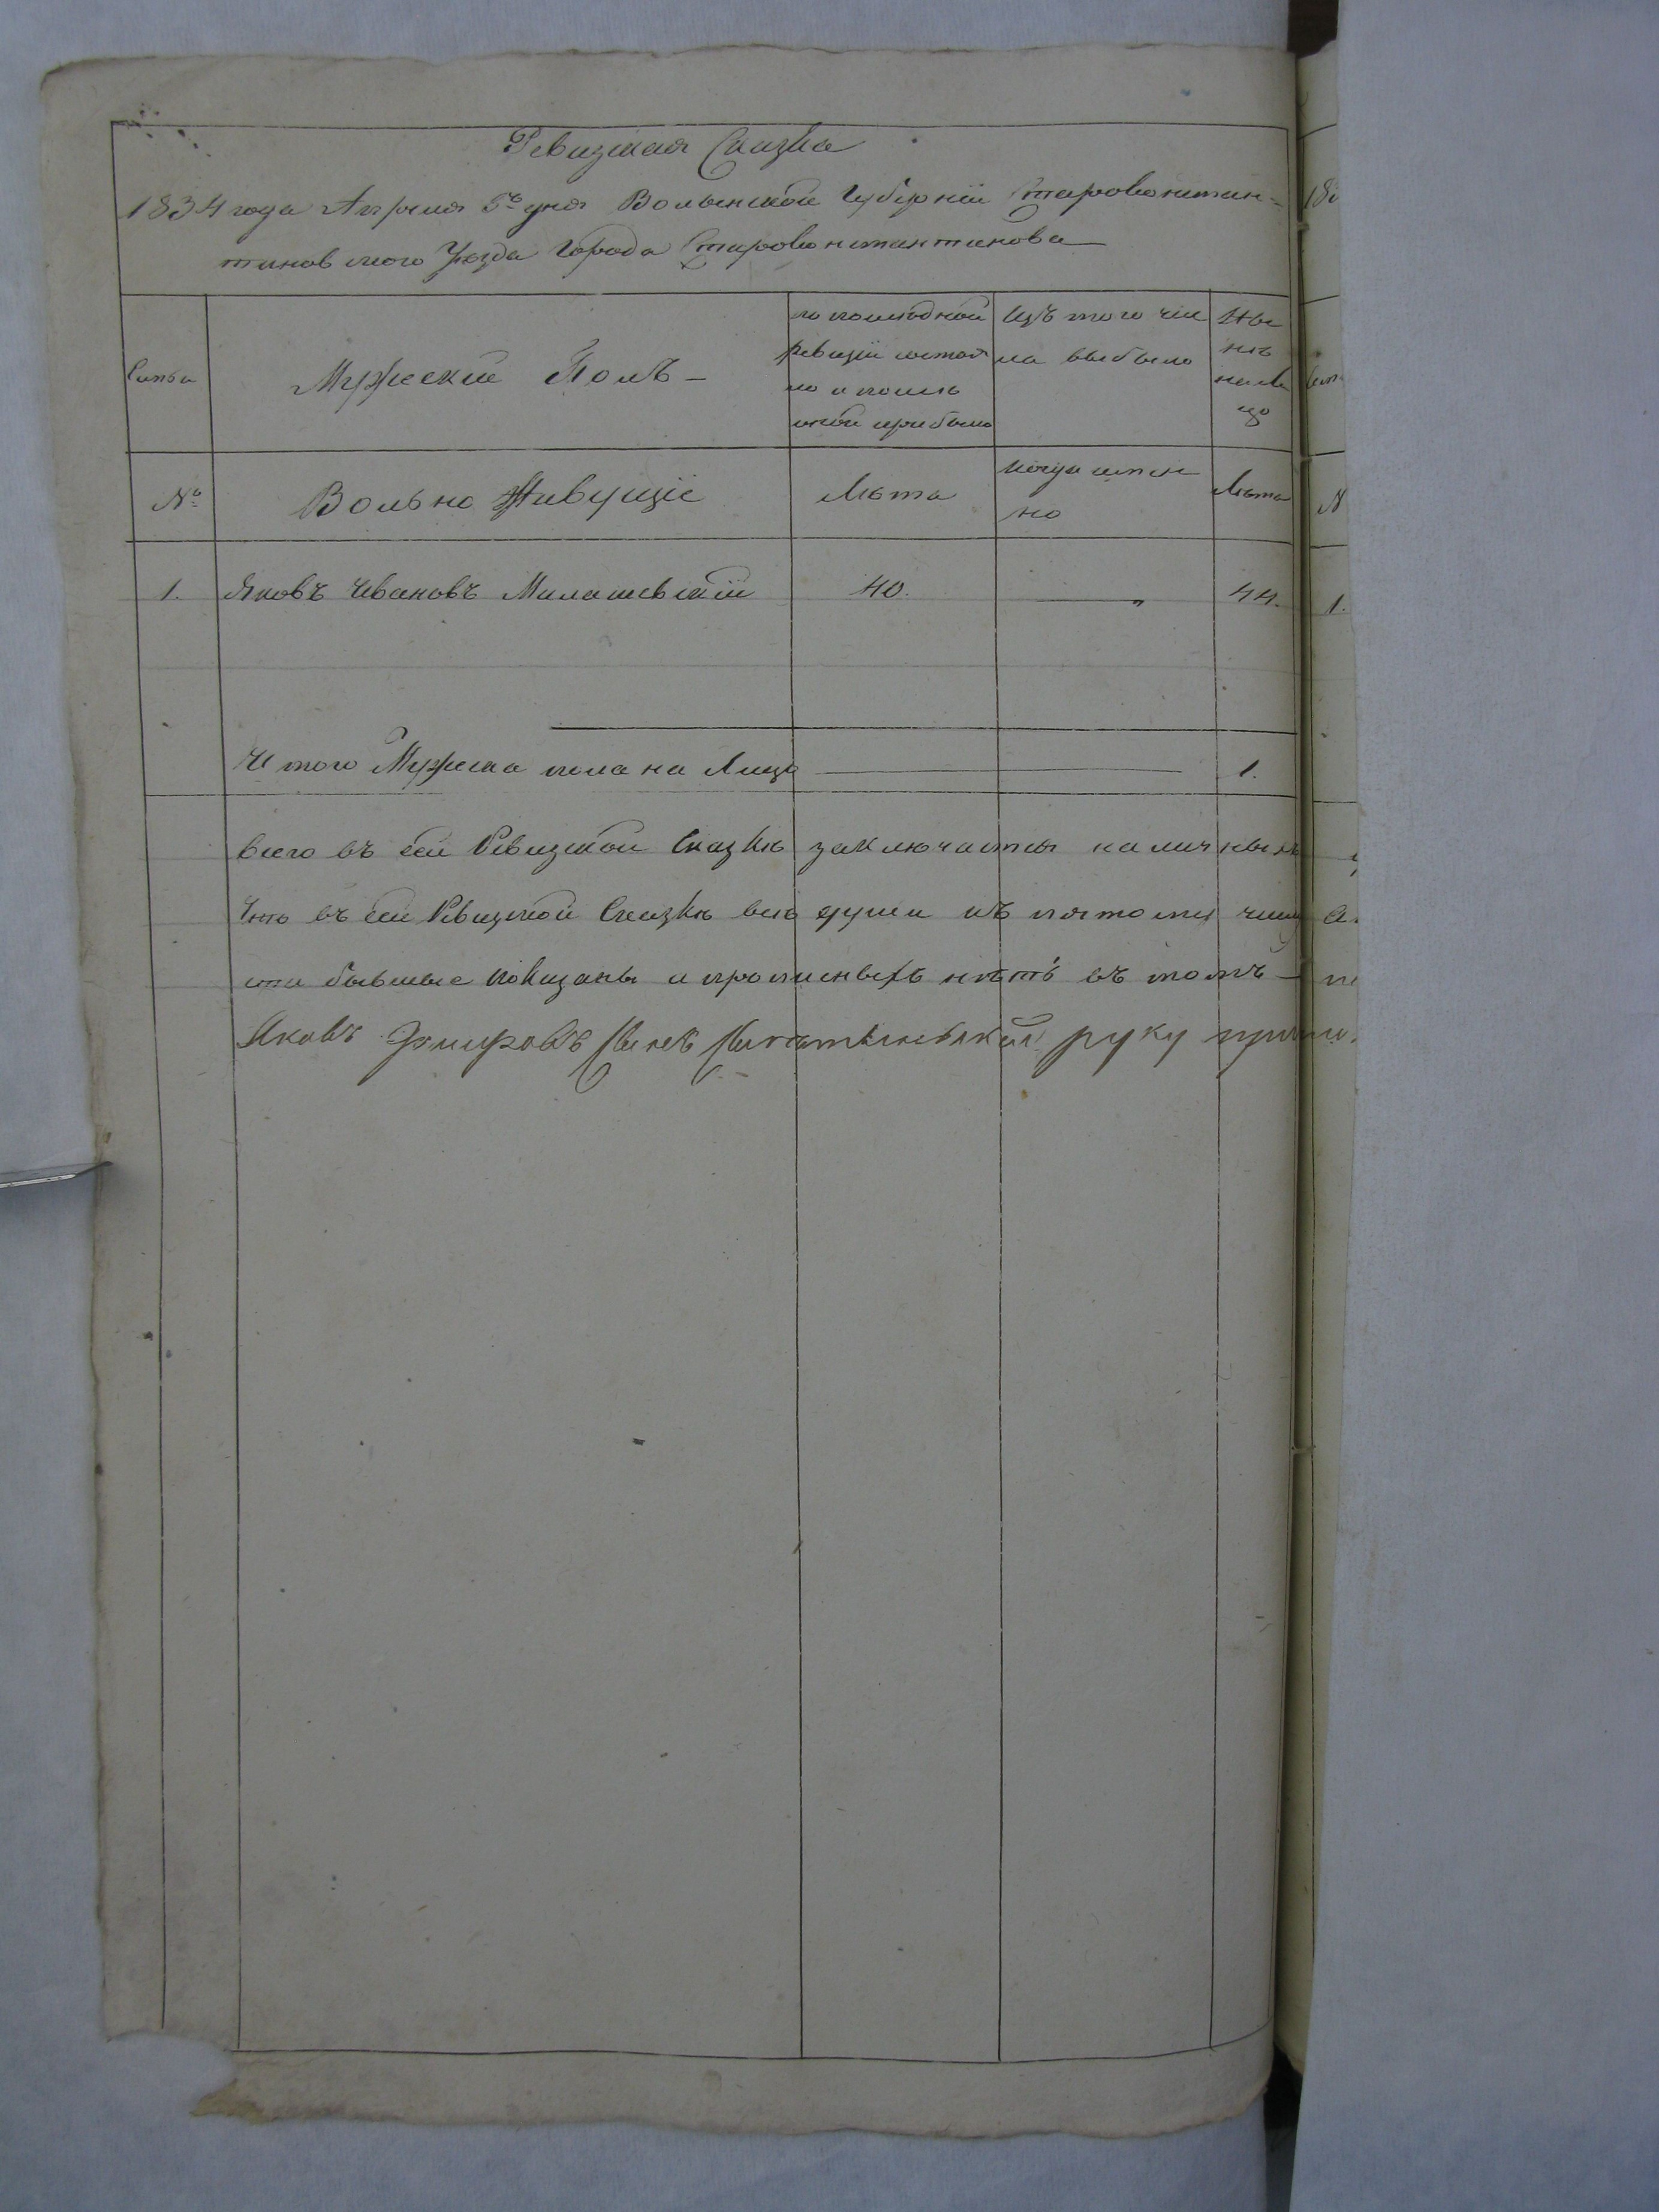 Ревизская Сказка
1834 года Апреля 5го дня Волынской Губернии Староконстан-
тиновского Уезда Города Староконстантинова
Семьи
Мужеский Полъ -
по последной
ревизіи состоя
ло и после
оной прибыло
Изъ того чис
ла выбыло
Ны
не
на ли
цо
№
Вольно Живущіе
Лета
когда имен
но
Лета
1. Яковъ Ивановъ Милашевскій 40. — „ 44.
Итого Мужеска пола на Лицо 1.
Всего въ сей Ревизской Сказке заключается наличныхъ
Что въ сей Ревизской Сказке все души къ пятому чис
бывшые показаны а прописныхъ нетъ въ томъ —
Яковъ руку